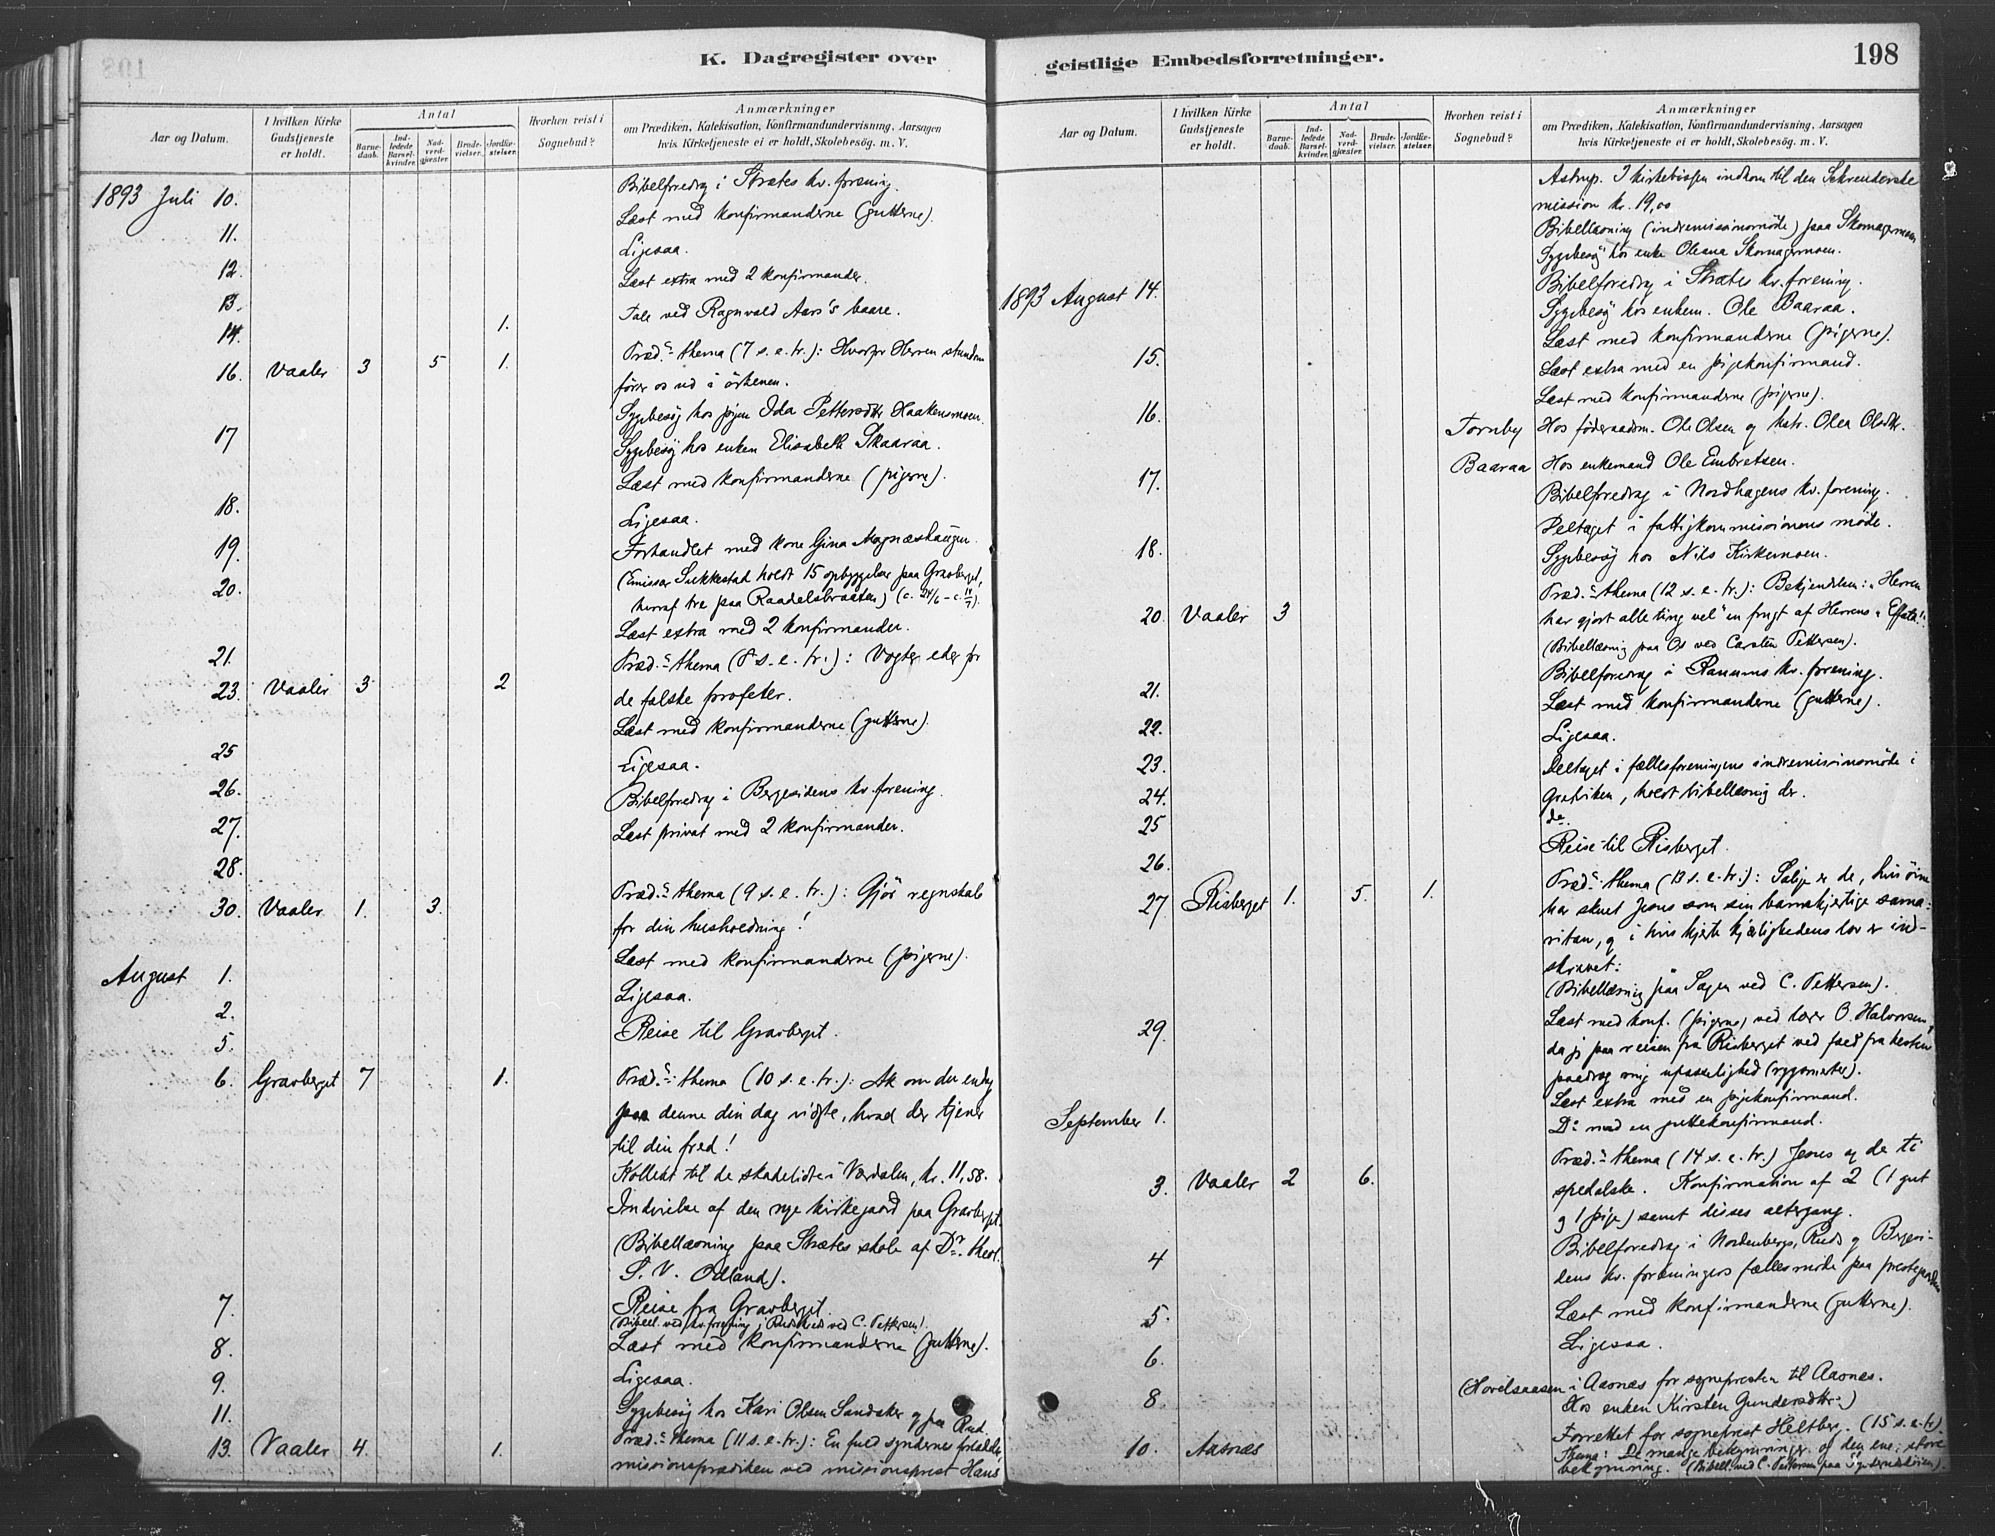 K. Dagregister over
Aar og Datum.
I hvilken Kirke Gudstjeneste er holdt.
Antal
Barnedaab.
Indledede Barselkvinder.
Nadverdgjæster.
Brudevielser.
Jordfæstelser.
Hvorhen reist i Sognebud?
Anmærkninger
om Prædiken, Katekisation, Konfirmandundervisning, Aarsagen
hvis Kirketjeneste ei er holdt, Skolebesøg. m. V.
1893 Juli 10. Bibelforedrag i Stræts kv. forening.
Læst med konfirmanderne (gutterne).
11. Ligesaa.
12. Læst extra med 2 konfirmander.
13. Tale ved Ragnvald Aars's baare.
14. 1.
16. Vaaler 3 5 1. Præd.s thema (7 s. e. tr.): Hvorfor Herren stundom
fører os ud i örkenen.
Sygebesög hos pigen Ida Pettersdtr Haakensmoen.
17 Sygebesög hos enken Elisabeth Skaaraa.
Læst med konfirmanderne (pigerne).
18. Ligesaa.
19. Forhandlet med kone Gina Magnæshaugen.
(Emissær Sukkestad holdt 15 opbyggelser paa Gravberget,
20. hvoraf tre paa Raadelsbraaten)
Læst extra med 2 konfirmander.
21. Præd.s thema (8 s. e. tr.): Vogter eder for
23. Vaaler 3 2 de falske profeter.
Læst med konfirmanderne (gutterne).
25 Ligesaa.
26. Bibelforedrag i Bergesidens kv. forening.
27. Læst privat med 2 konfirmander.
28.
30. Vaaler 1. 3. Præd.s thema (9 s. e. tr.): Gjör regnskab
for din husholdning!
Læst med konfirmanderne (pigerne).
August 1. Ligesaa.
2.
5. Reise til Gravberget.
6. Gravberget 7 1. Præd.s thema (10 s. e. tr.): Ak om du endog
paa denne din dag vidste, hvad der tjener
til din fred!
Kollekt til de skadelidte i Værdalen, kr. 11,58.
Indvielse af den nye kirkegaard paa Gravberget.
(Bibellæsning paa Strætes skole af Dr. theol.
S. V. Odland).
7. Reise fra Gravberget.
(Bibell. ved kv. forening i Rud ved C. Pettersen).
8. Læst med konfirmanderne (gutterne).
9. Ligesaa.
11. Sygebesög hos Kari Olsen Sandaker og paa Rud.
13. Vaaler 4. 1. Præd.s thema (11 s. e. tr.): En fuld synderes forladelse
missionsprædiken ved missionsprest Hans
geistlige Embedsforretninger.
198
Aar og Datum.
I hvilken Kirke Gudstjeneste er holdt.
Antal
Barnedaab.
Indledede Barselkvinder.
Nadverdgjæster.
Brudevielser.
Jordfæstelser.
Hvorhen reist i Sognebud?
Anmærkninger
om Prædiken, Katekisation, Konfirmandundervisning, Aarsagen
hvis Kirketjeneste ei er holdt, Skolebesøg. m. V.
Astrup. I kirkebössen indkom til den Schreuderske
mission kr. 19,00
Bibellæsning (indremissionsmöde) paa Skomagermoen
Sygebesög hos enke Oleana Skomagermoen.
1893 August 14. Bibelforedrag i Strætes kv. forening.
Sygebesög hos enkem. Ole Baaraa.
Læst med konfirmanderne (pigerne).
15. Læst extra med en pigekonfirmand.
Læst med konfirmanderne (pigerne).
16. Tornby Hos föderaadsm. Ole Olsen og hstr. Olea Olsdtr.
Baaraa Hos enkemand Ole Embretsen.
17. Bibelforedrag i Nordhagens kv. forening.
Deltaget i fattigkommissionens möde.
18. Sygebesög hos Nils Kirkemoen.
Præd.s thema (12 s. e. tr.): Bekjendelsen: "Herren
20. Vaaler 3 har gjort alle ting vel" en frugt af Herrens "Effata!".
(Bibellæsning paa Os ved Carsten Pettersen).
21. Bibelforedrag i Ranums kv. forening.
Læst med konfirmanderne (gutterne).
22. Ligesaa.
23. Deltaget i fællesforeningens indremissionsmöde i
24. Grafviken, holdt bibellæsning der.
25 do.
26. Reise til Risberget.
27 Risberget 1. 5. 1. Præd.s thema (13 s. e. tr.): Salige er de, hvis öine
har skuet Jesus som sin barmhjertige sama-
ritan, og i hvis hjerte kjærlighedens lov er ind-
skrevet:
(Bibellæsning paa Sagen ved C. Pettersen).
29. Læst med konf. (pigerne) ved lærer O. Halvorsen,
da jeg paa reisen fra Risberget ved fald fra hesten
paadrog mig upasselighed (rygsmerter).
Læst extra med en pigekonfirmand.
September 1. Do med en guttekonfirmand.
Præd.s thema (14 s. e. tr.) Jesus og de ti
3. Vaaler 2 6. spedalske. Konfirmation af 2 (1 gut
og 1 pige) samt disses altergang.
4 Bibelforedrag i Nordenbergs, Ruds og Bergesi-
dens kv. foreningers fællesmöde paa prestegaarden
5. Læst med konfirmanderne (gutterne).
6. Ligesaa.
8. (Hovelsaasen i Aasnæs for sognepresten til Aasnæs.
Hos enken Kirsten Gundersdtr.)
10. Aasnæs Forrettet for sogneprest Heltberg. (15 s. e. tr.)
Thema: De mange bekymringer og den ene, store
bekymring. (Bibell. ved C. Pettersen paa